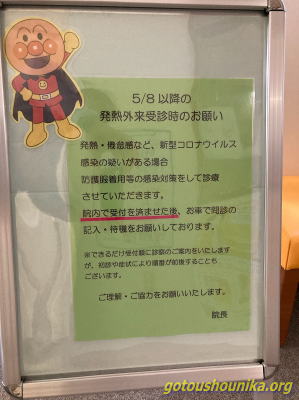 5/8 以降の
発熱外来受診時のお願い
発熱・倦怠感など、新型コロナウイルス
感染の疑いがある場合
防護服着用等の感染対策をして診療
させていただきます。
院内で受付を済ませた後、お車で問診の
記入・待機をお願いしております。
※できるだけ受付順に診察のご案内をいたします
が、初診や症状により順番が前後することも
ございます。
ご理解・ご協力をお願いいたします。
院長
gotoushounika.org